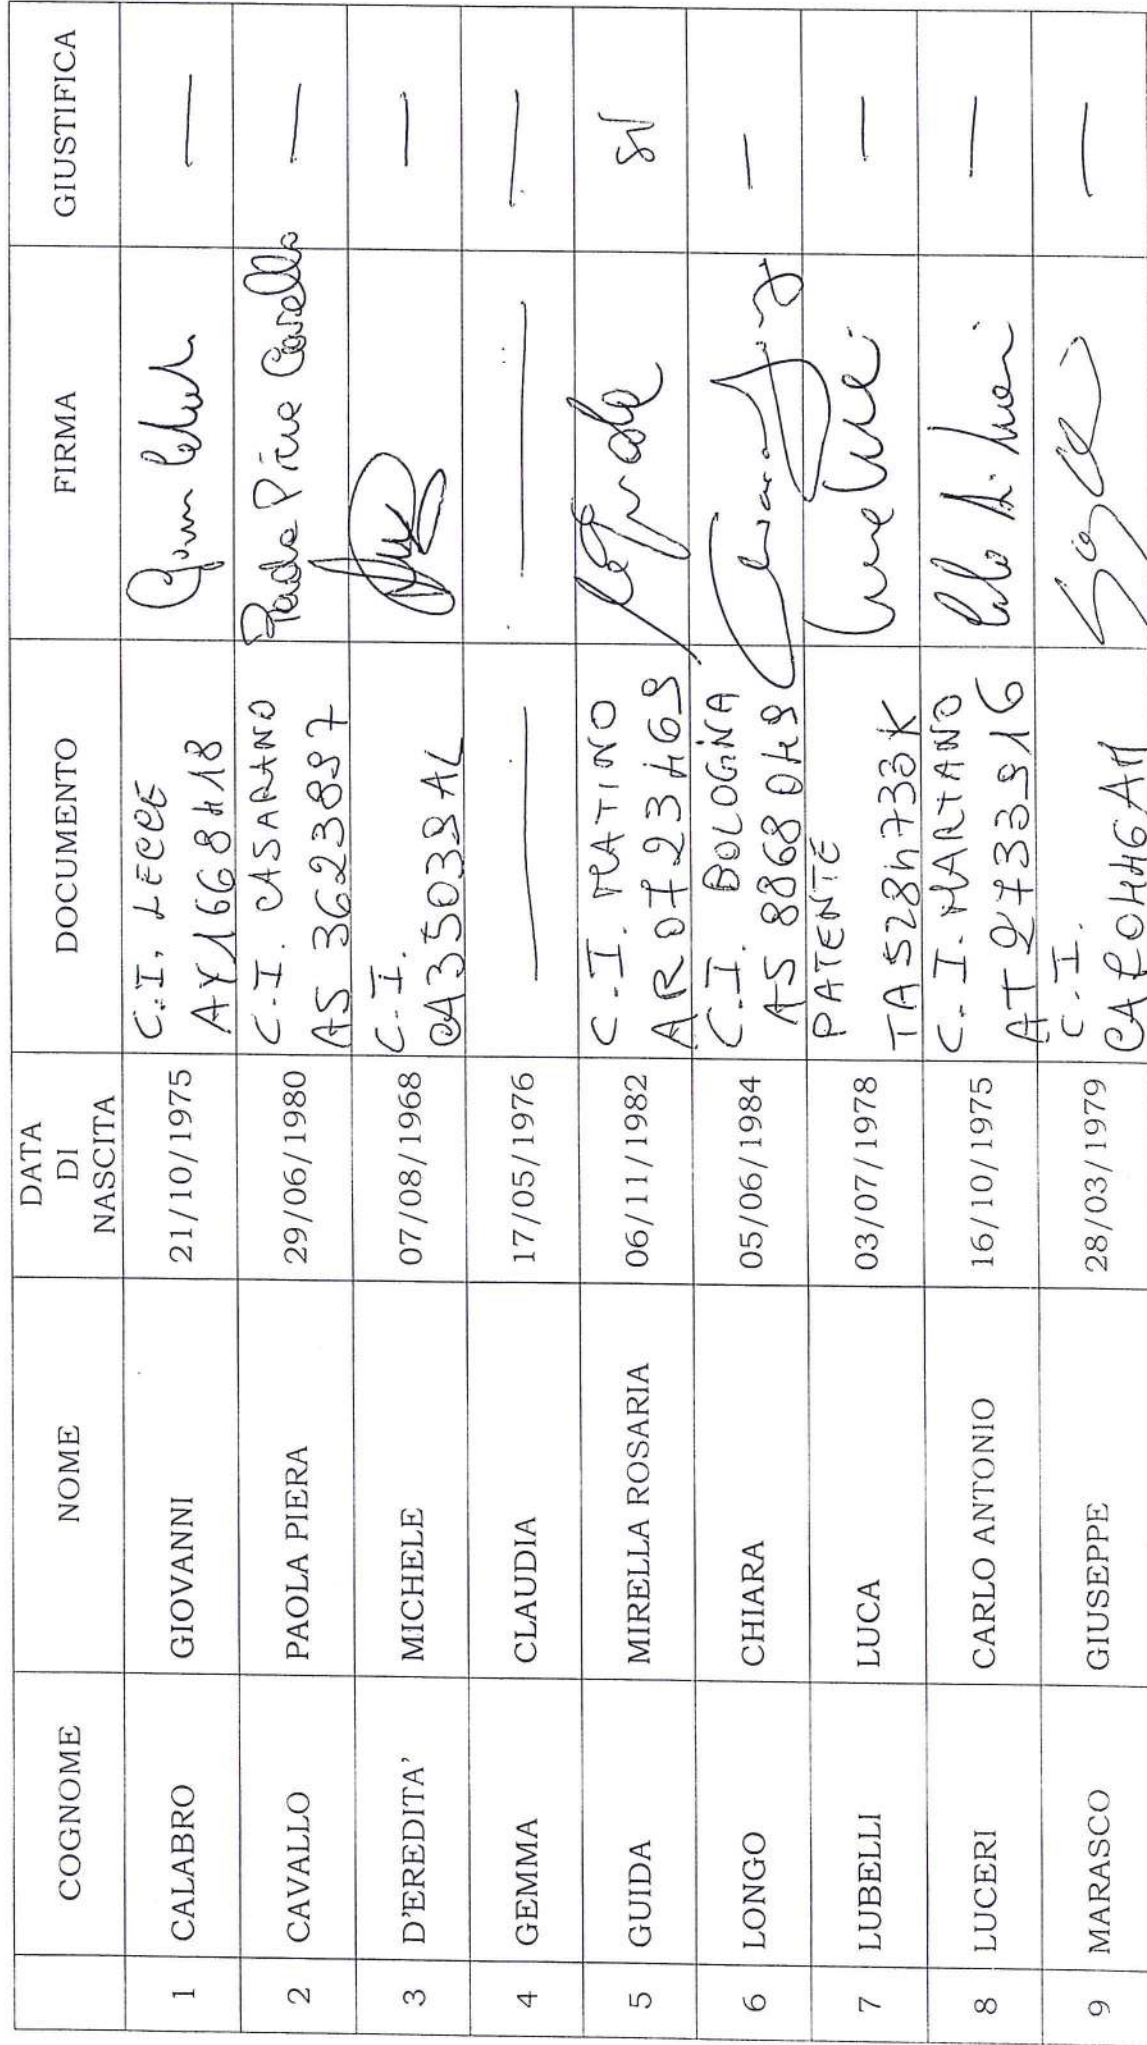 COGNOME NOME DATA DI NASCITA DOCUMENTO FIRMA GIUSTIFICA
1 CALABRO GIOVANNI 21/10/1975 C.I. LECCE —
AY1668418
2 CAVALLO PAOLA PIERA 29/06/1980 C.I. CASARANO Paola Piera Cavallo —
AS 3623897
3 D'EREDITA' MICHELE 07/08/1968 C.I. —
CA35039AL
4 GEMMA CLAUDIA 17/05/1976 — — —
5 GUIDA MIRELLA ROSARIA 06/11/1982 C.I. MATINO SI
AR0723469
6 LONGO CHIARA 05/06/1984 C.I. BOLOGNA —
AS 8868049
7 LUBELLI LUCA 03/07/1978 PATENTE —
8 LUCERI CARLO ANTONIO 16/10/1975 C.I. MARTANO —
AT2733916
9 MARASCO GIUSEPPE 28/03/1979 C.I. —